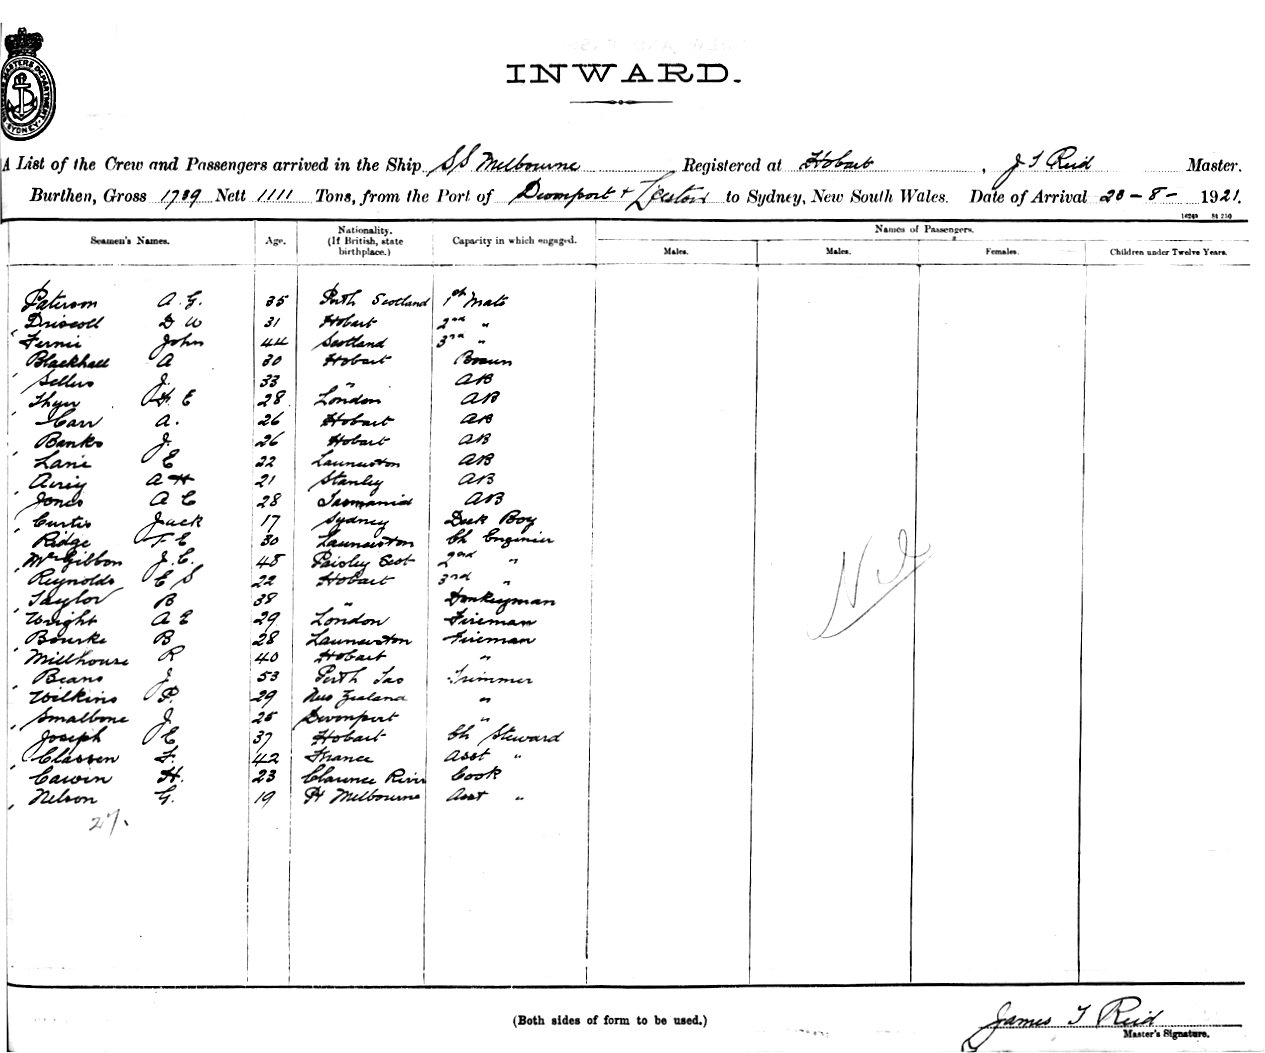 INWARD.
A List of the Crew and Passengers arrived in the Ship SS Melbourne Registered at Hobart, J T Reid Master.
Burthen, Gross 1739 Nett 1111 Tons, from the Port of Devonport + to Sydney, New South Wales. Date of Arrival 23-8-1921.
Seamen's Names. Age. Nationality. (If British, state birthplace.) Capacity in which engaged. Names of Passengers.
Males. Males. Females. Children under Twelve Years.
Paterson A. G. 35 Perth Scotland 1st Mate
Driscoll D W 31 Hobart 2nd "
Fernie John 44 Scotland 3rd "
Blackhall A 30 Hobart Bosun
Sellers J. 33 " AB
Thyer H E 28 London AB
Carr A. 26 Hobart AB
Banks J. 26 Hobart AB
Lane E 22 Launceston AB
A H 21 Stanley AB
Jones A E 28 Tasmania AB
Curtis Jack 17 Sydney Deck Boy
Ridge F E 30 Launceston Ch Engineer
McGibbon J. C. 48 Paisley Scot 2nd "
Reynolds E S 22 Hobart 3rd "
Taylor B 38 " Donkeyman
Wright A E 29 London Fireman
Bourke B 28 Launceston Fireman
Millhouse R 40 Hobart "
Beans J 53 Perth Tas Trimmer
Wilkins P. 29 New Zealand "
Smalbone J. 25 Devonport "
Joseph E 37 Hobart Ch Steward
Classen F. 42 France Asst "
Cawin H. 23 Clarence River Cook
Nelson G. 19 Pt Melbourne Asst "
27.
Nil
(Both sides of form to be used.)
James T Reid
Master's Signature.